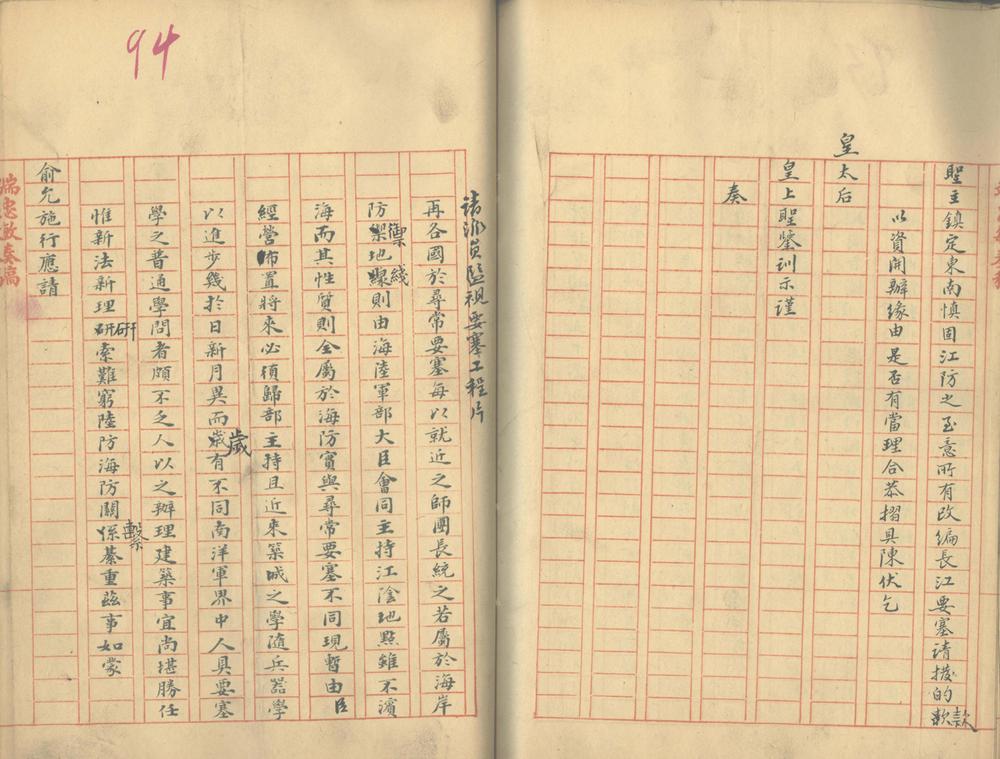 聖主鎮定東南慎固江防之至意所有改編長江要塞請撥的款款
以資開辦緣由是否有當理合恭摺具陳伏乞
皇太后
皇上聖鑒訓示謹
奏
請派員監視要塞工程片
再各國於尋常要塞每以就近之師團長統之若屬於海岸
防禦禦地線綫則由海陸軍部大臣會同主持江陰地點雖不濱
海而其性質則全屬於海防實與尋常要塞不同現暫由臣
經營佈置將來必須歸部主持且近來築城之學隨兵器學
以進步幾於日新月異而歲歲有不同南洋軍界中人具要塞
學之普通學問者頗不乏人以之辦理建築事宜尚堪勝任
惟新法新理研研索難窮陸防海防關係繫綦重茲事如蒙
俞允施行應請
端忠敏奏稿
94